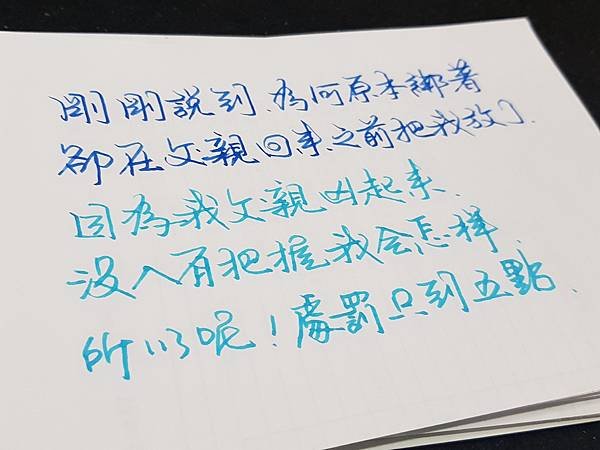 剛剛說到、為何原本綁著
卻在父親回來之前把我放了.
因為我父親凶起來、
沒人有把握我会怎样.
所以呢！處罰只到五點、